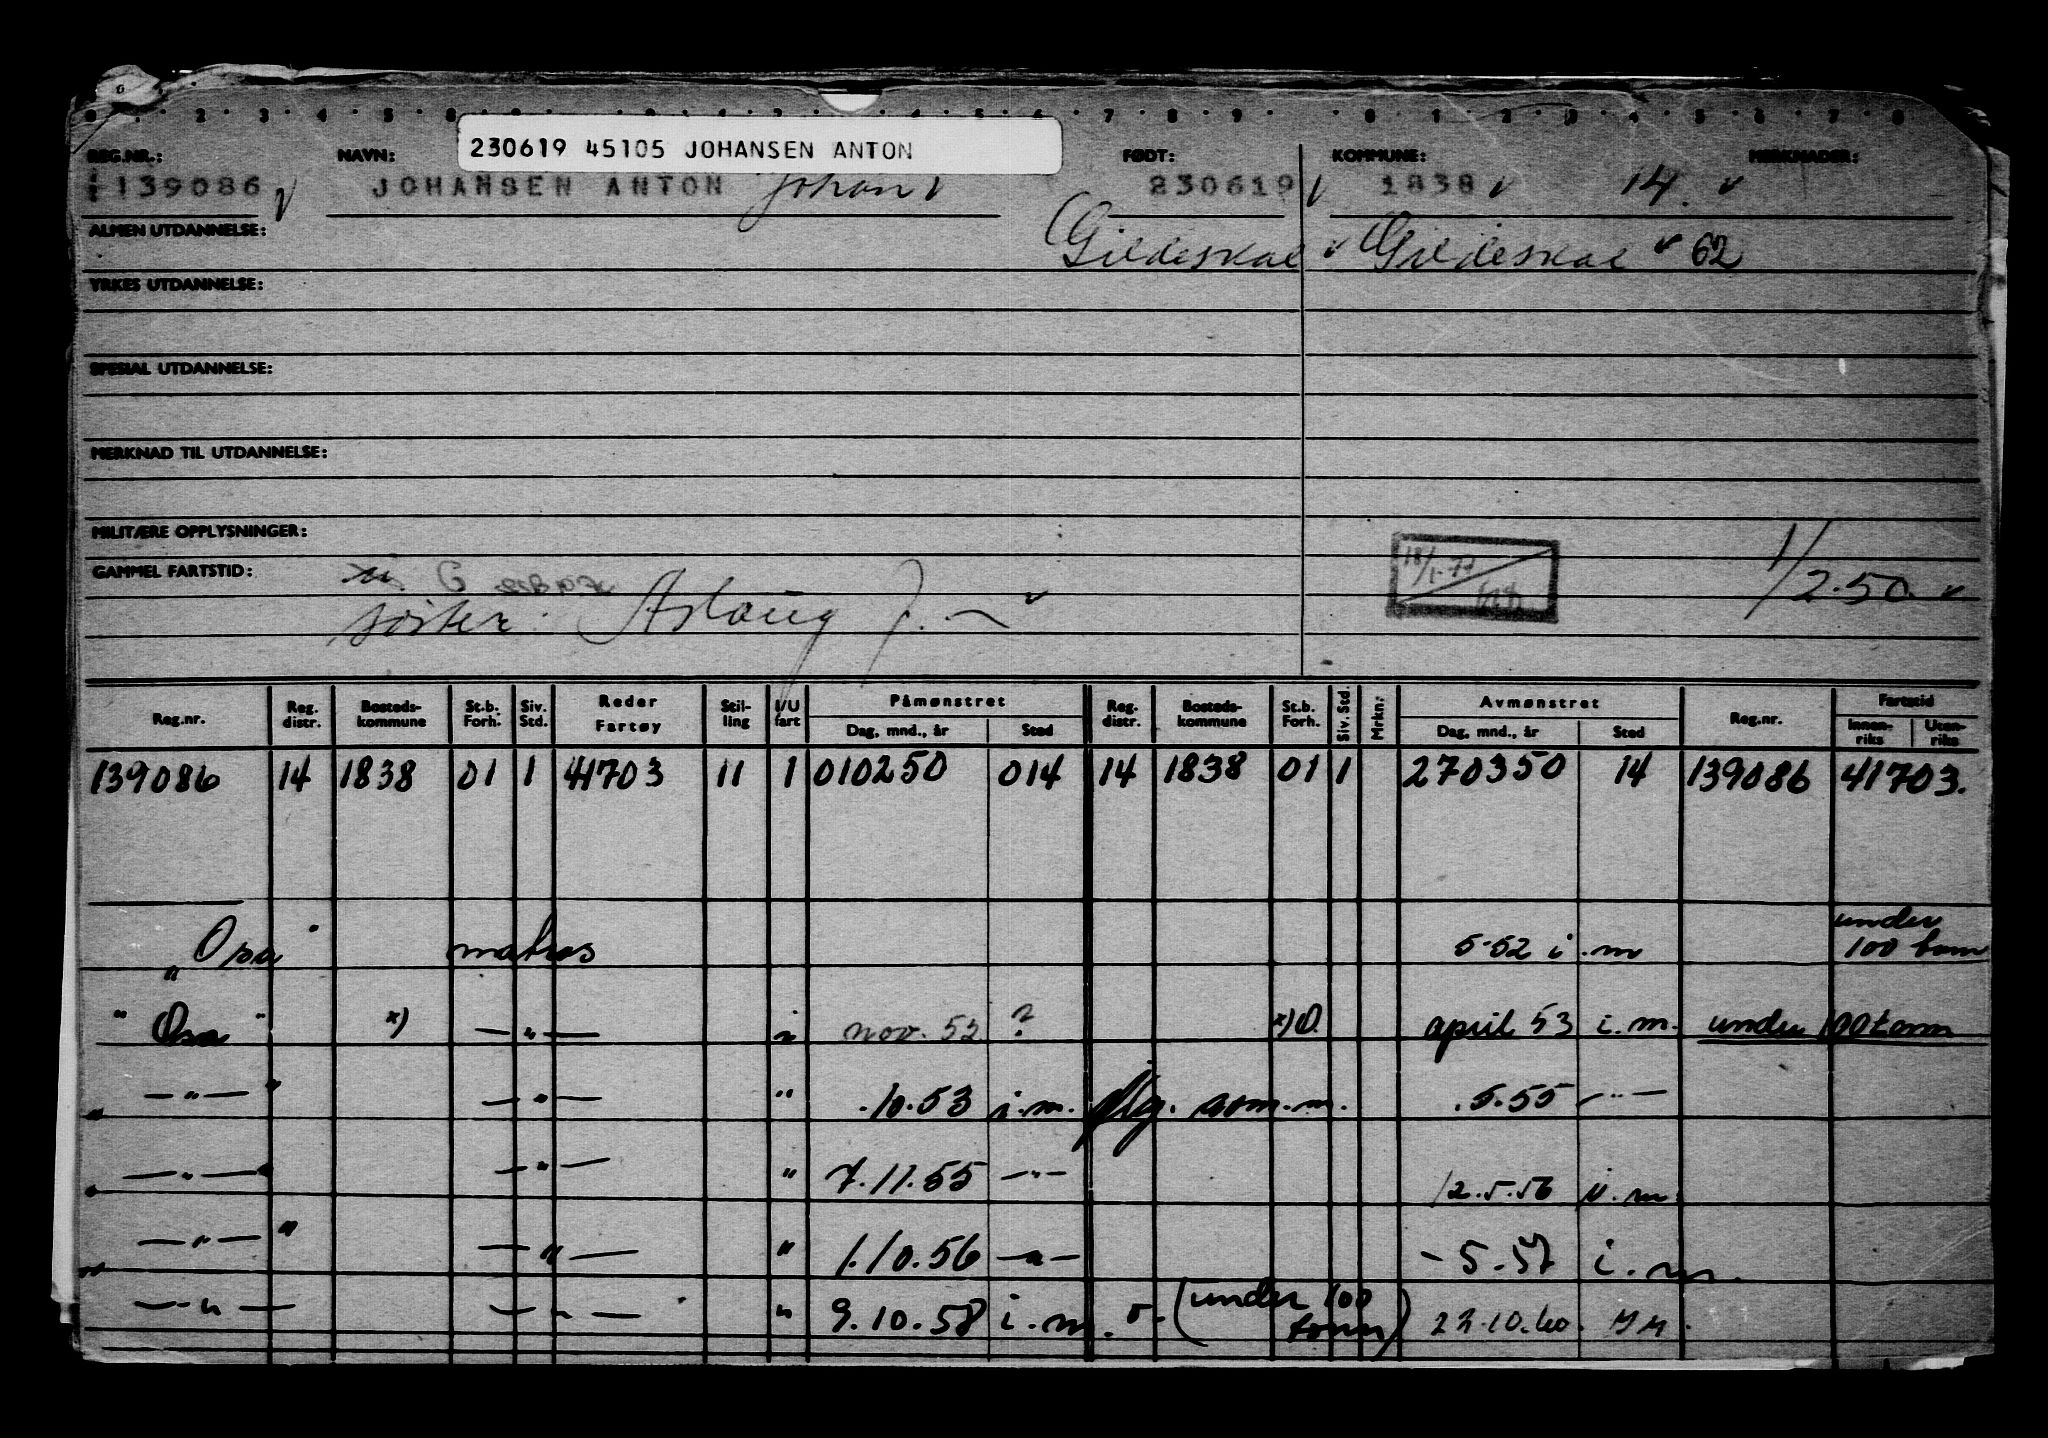 230619 45105 JOHANSEN ANTON
REG.NR.: NAVN: FØDT: KOMMUNE: MERKNADER:
139086 JOHANSEN ANTON Johan 230619 1838 14.
ALMEN UTDANNELSE: Gildeskal Gildeskal 62
YRKES UTDANNELSE:
SPESIAL UTDANNELSE:
MERKNAD TIL UTDANNELSE:
MILITÆRE OPPLYSNINGER:
GAMMEL FARTSTID:
18/1-77
1/2.50.
søster: Aslaug J.
Reg.nr. Reg. distr. Bosteds-kommune St.b. Forh. Siv. Std. Reder Fartøy Stil-ling I/U fart Påmønstret Dag, mnd., år Sted Reg. distr. Bosteds-kommune St.b. Forh. Siv. Std. Mrkn: Avmønstret Dag, mnd., år Sted Reg.nr. Fartstid Innen-riks Uten-riks
139086 14 1838 01 1 41703 11 1 010250 014 14 1838 01 1 270350 14 139086 41703.
"Osa" matros 5-52 i.m under 100 tonn
"Osa" x) — " — i nov. 52 ? x) O. april 53 i.m. under 100 tonn
" — " — " — " — " .10.53 i.m. som m. .5.55 — " —
— " — — " — " 7.11.55 — " — 12.5.56 i.m.
" — " — " — " — " 1.10.56 — " — - 5.57 i.m.
— " — — " — " 9.10.58 i.m. (under 100 tonn) 22.10.60.